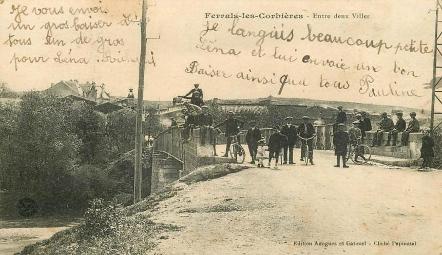 Je vous envoi
un gros baiser à
tous un de gros
pour Léna
Ferrals-les-Corbières - Entre deux Villes
Je languis beaucoup petite
Léna et lui envoie un bon
Baiser ainsi qua tous Pauline
Edition Amigues et - Cliché Papineau